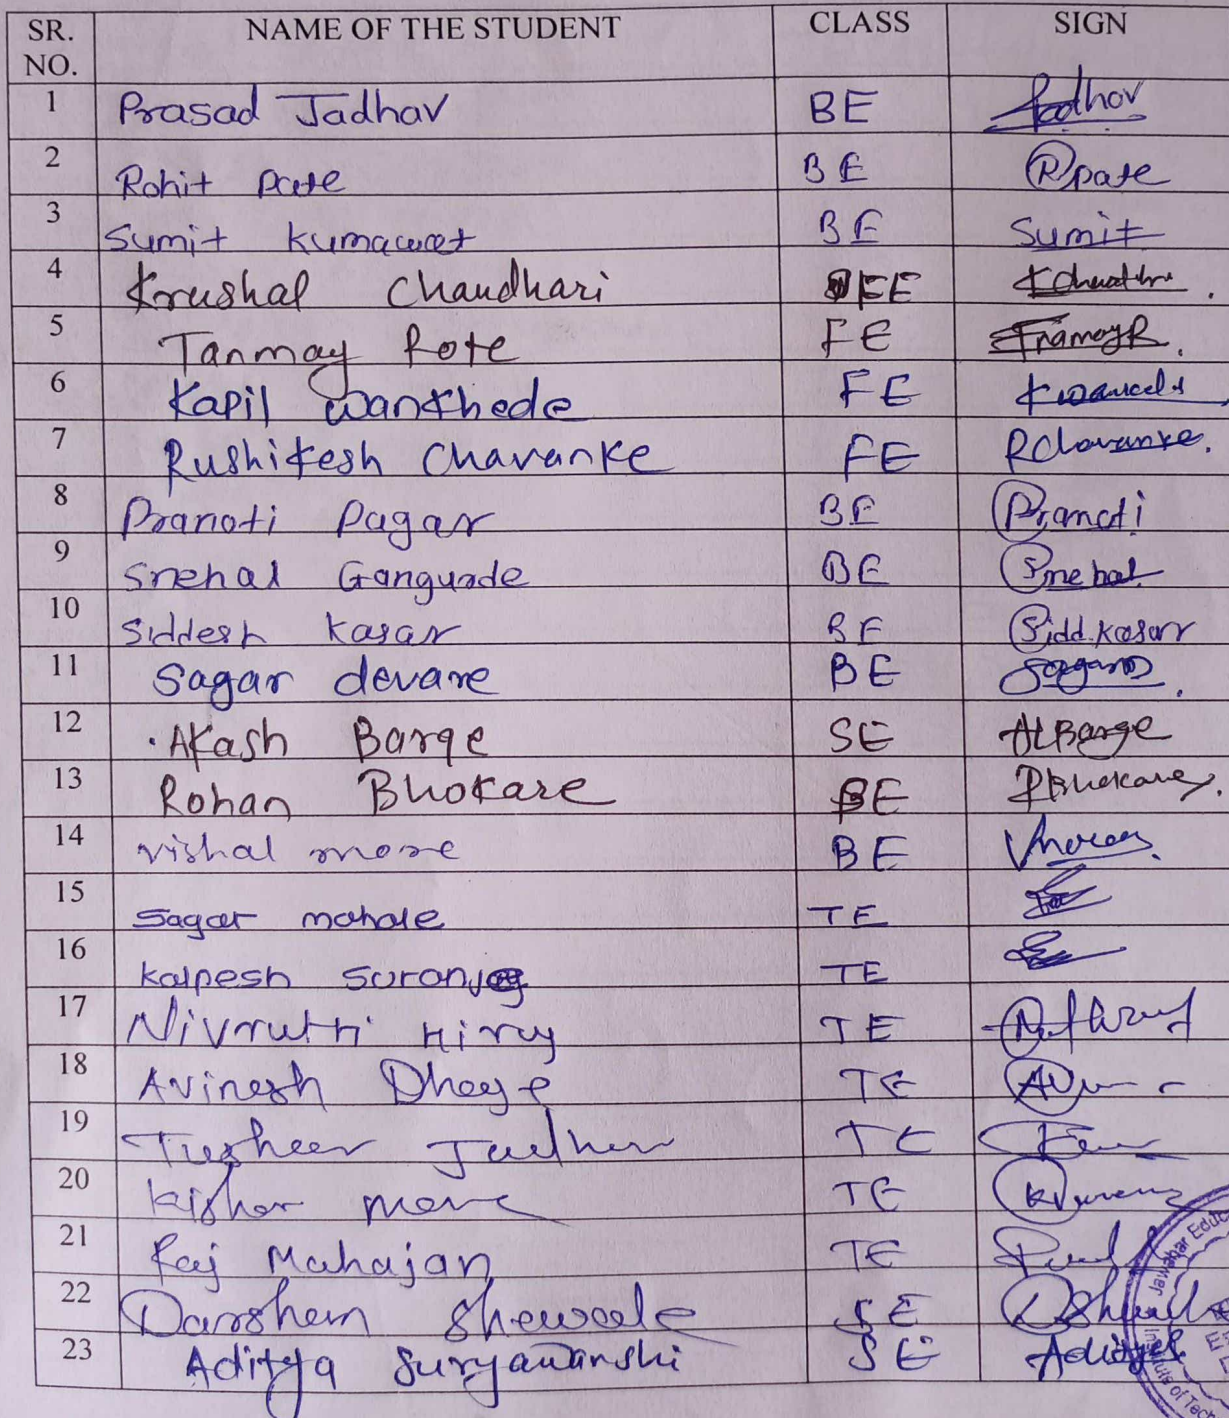 SR. NO. NAME OF THE STUDENT CLASS SIGN
1 Prasad Jadhav BE Jadhav
2 Rohit Pate BE Rpate
3 Sumit kumawat BE Sumit
4 Krushal Chaudhari FE
5 Tanmay Rote FE TnamayR.
6 Kapil Wankhede FE
7 Rushikesh Chavanke FE RChavanke.
8 Pranoti Pagar BE Pranoti
9 Snehal Gangurde BE Snehal
10 Siddesh kasar BE Sidd.kasar
11 Sagar devare BE
12 Akash Barge SE ALBarge
13 Rohan Bhokare BE RBhokare.
14 vishal more BE Vmore
15 Sagar mahale TE
16 kalpesh TE
17 Nivrutti Hiray TE
18 Avinash TE
19 Tushar Jadhav TE
20 kishor more TE
21 Raj Mahajan TE
22 Darshan Shewale SE
23 Aditya Suryawanshi SE Aditya
Jawahar Educ
Institute of Tech